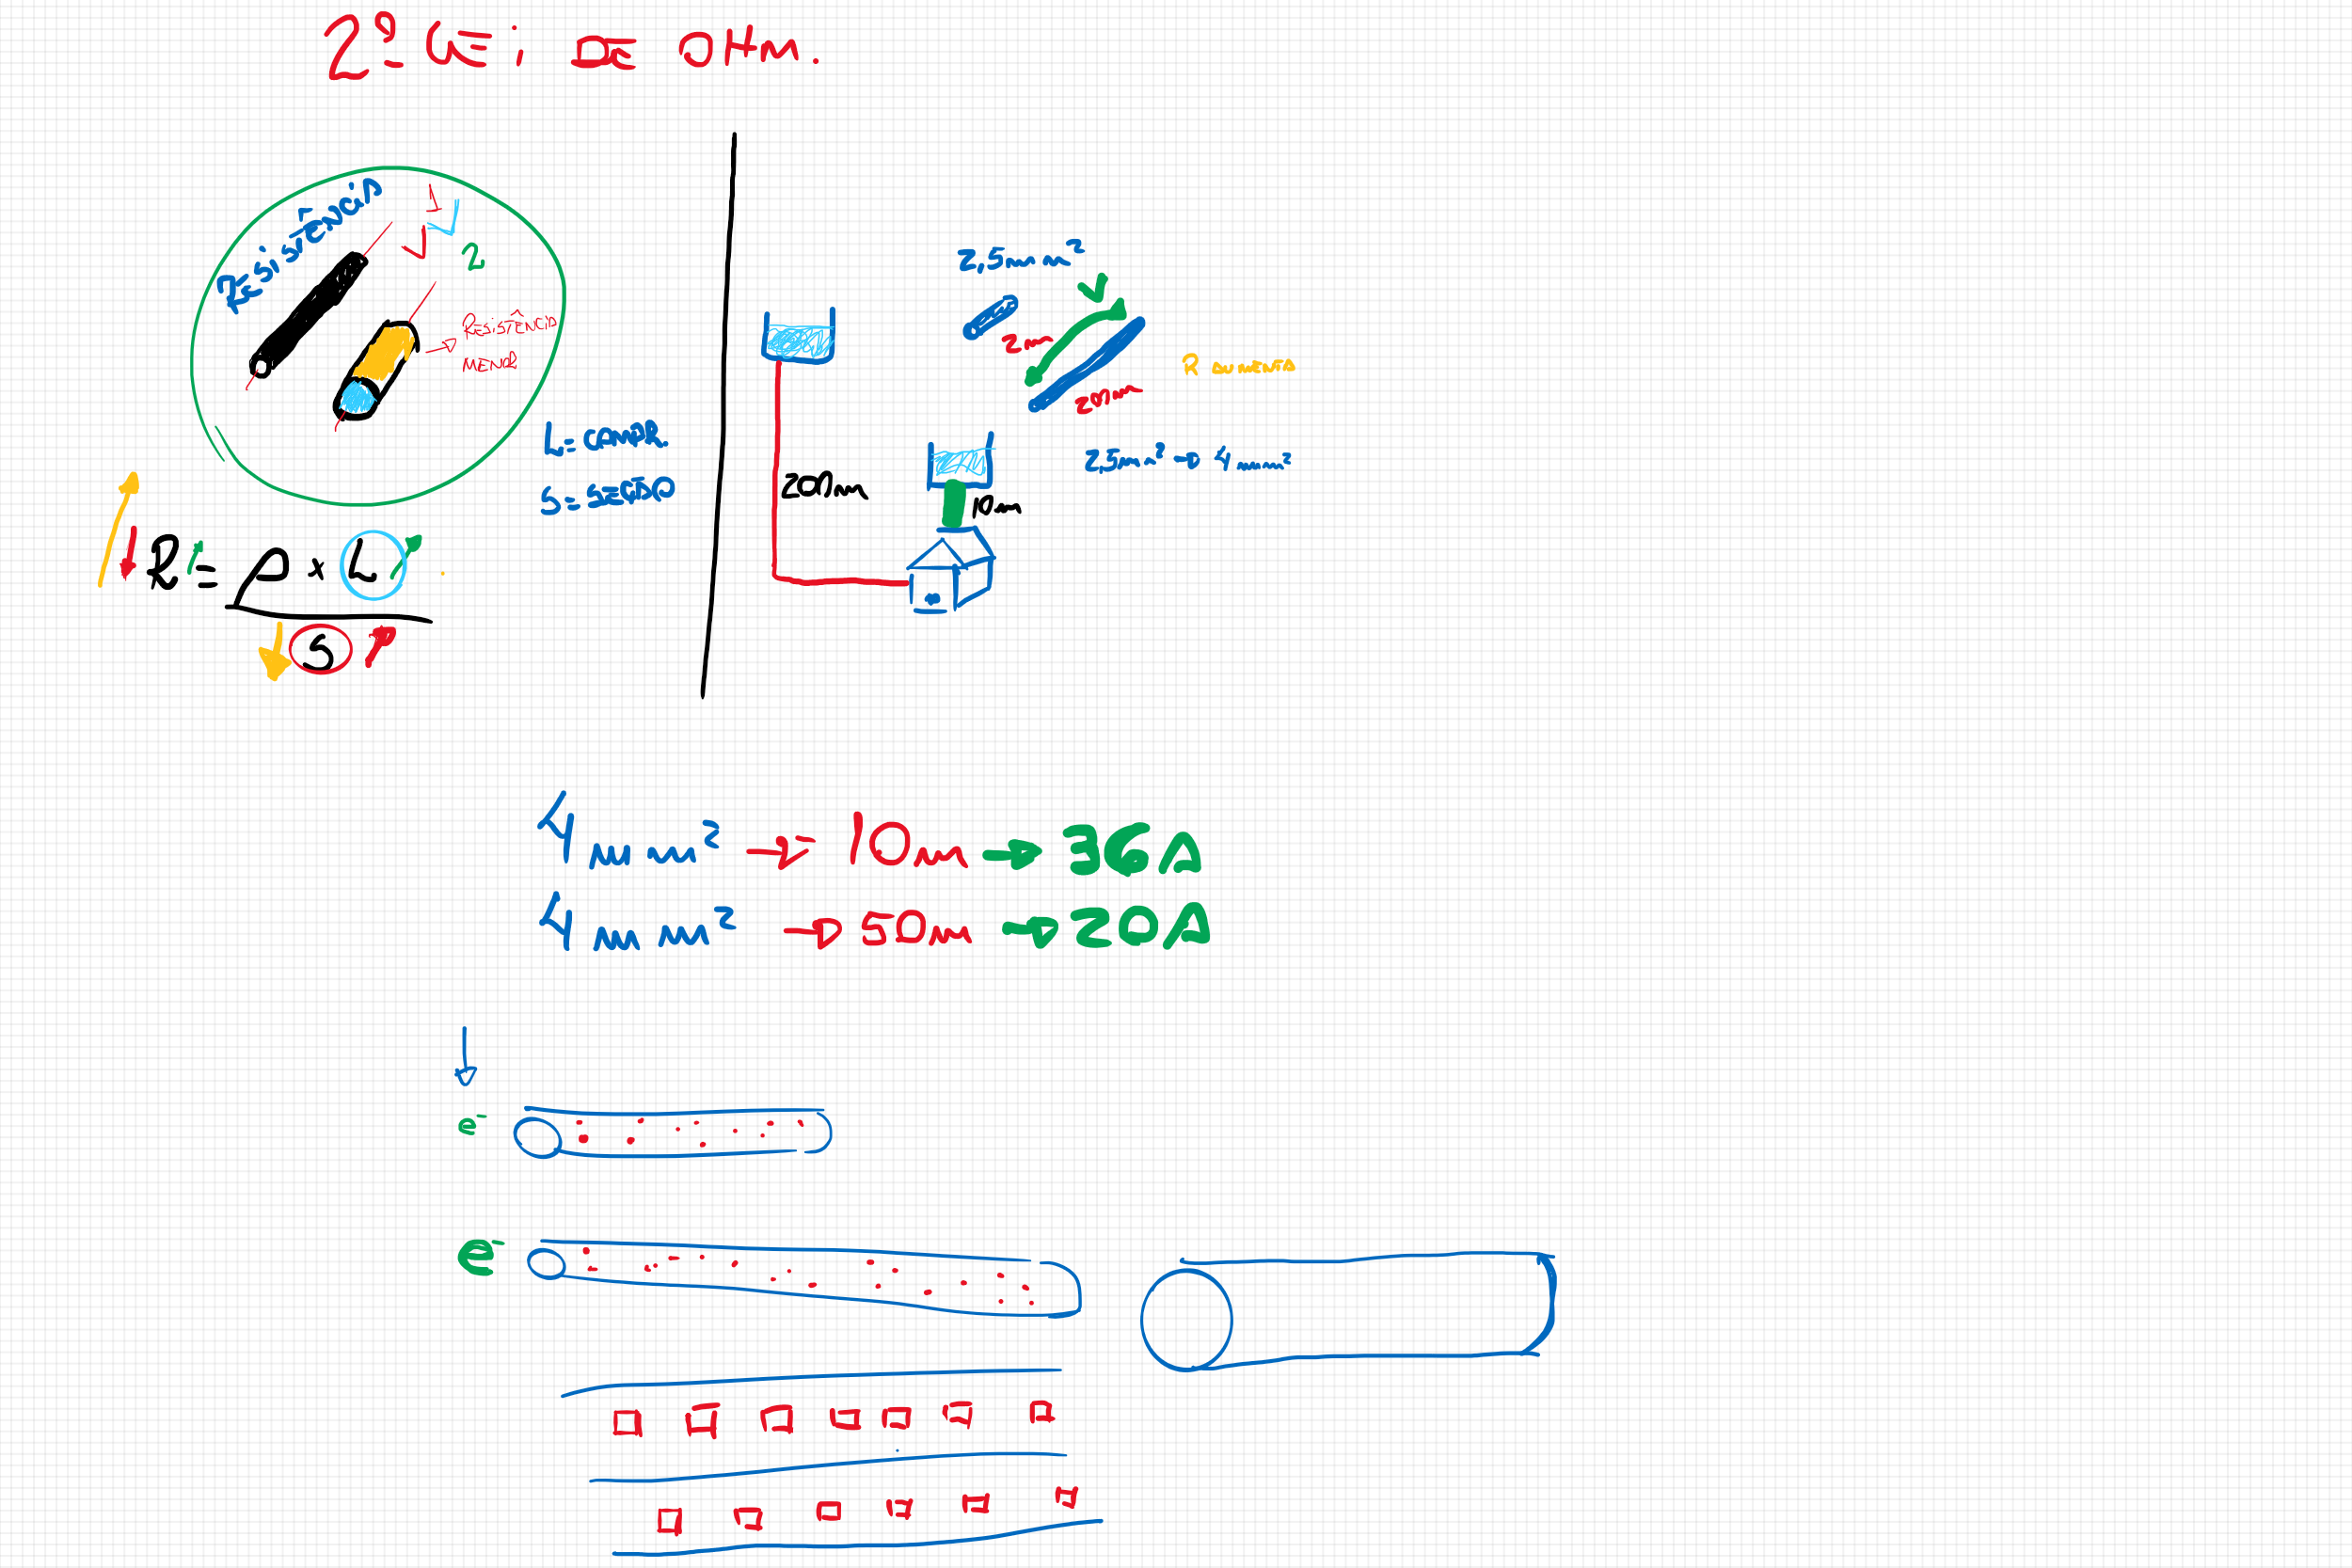 2ª LEi DE OHM.
RESiSTÊNCiA
1
2
RESiSTÊNCiA
MENOR
L = COMPR.
S = SEÇÃO
R = ρ x L
S
2,5mm²
2m
200m
R AUMENTA
2,5mm² → 4mm²
200m
10m
4mm² → 10m → 36A
4mm² → 50m → 20A
e⁻
e⁻